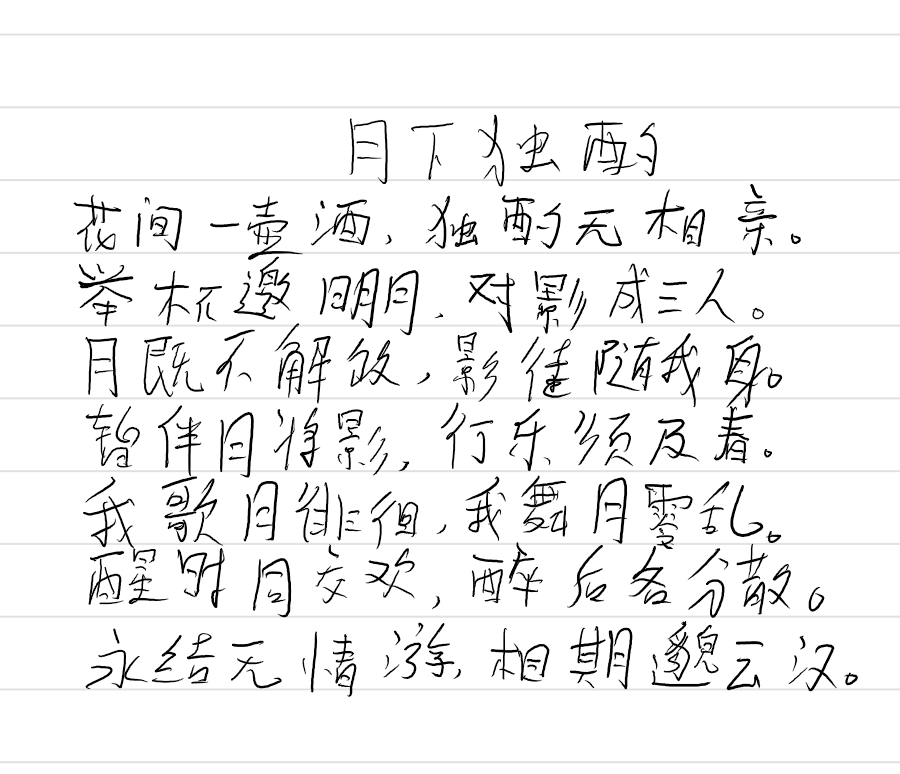 月下独酌
花间一壶酒,独酌无相亲。
举杯邀明月,对影成三人。
月既不解放,影徒随我身。
暂伴月将影,行乐须及春。
我歌月徘徊,我舞月零乱。
醒时同交欢,醉后各分散。
永结无情游,相期邈云汉。